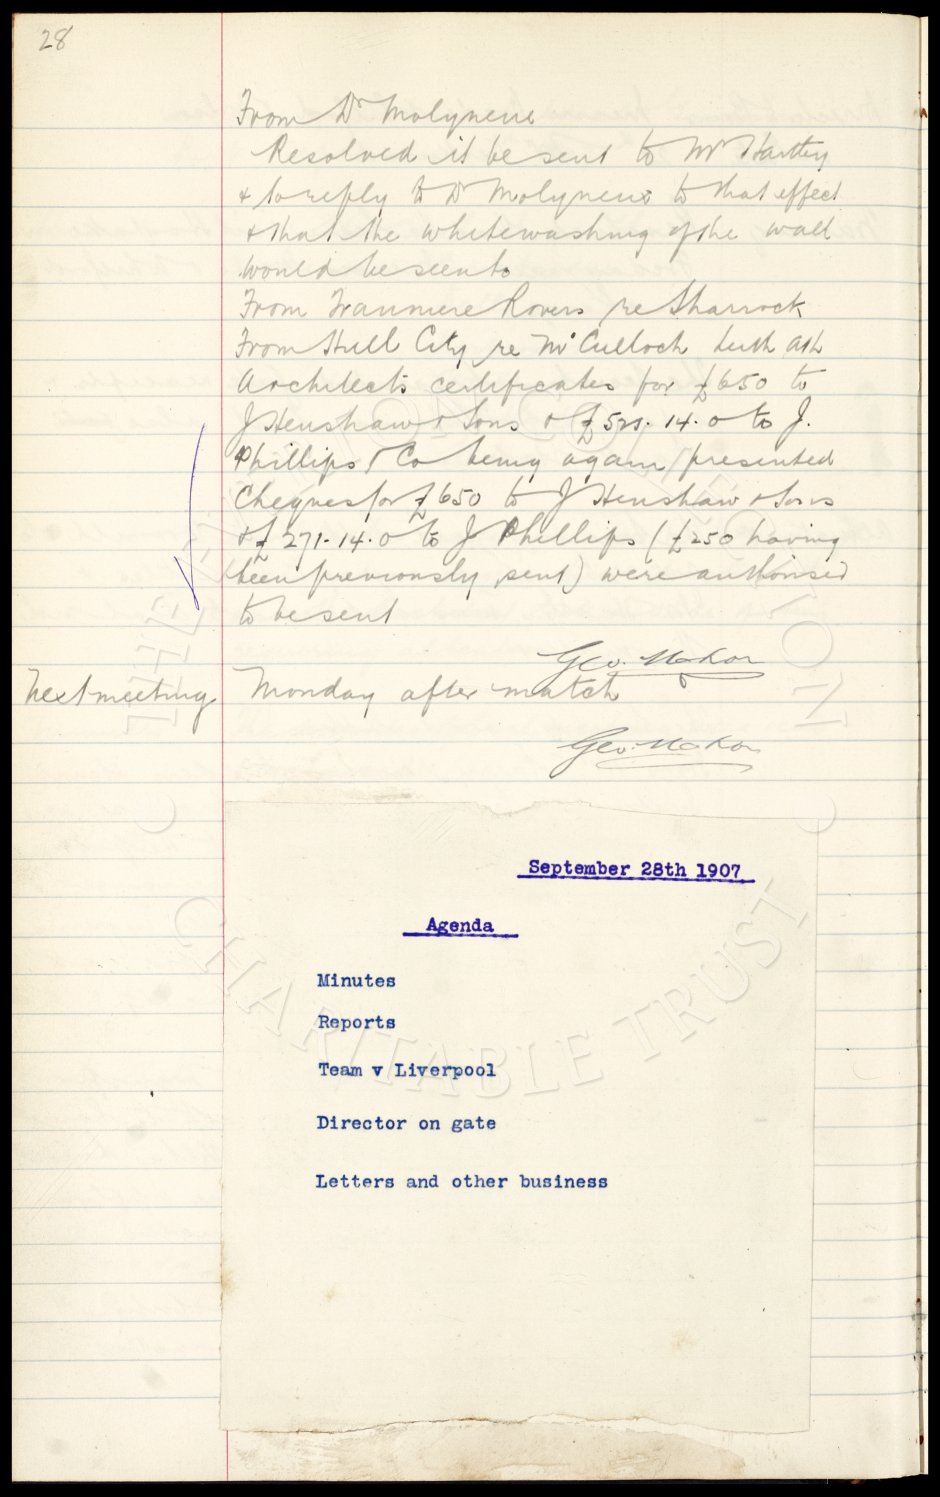 28
From Dr Molyneux
Resolved it be sent to Mr Hartley
& to reply to Dr Molyneux to that effect
& that the whitewashing of the wall
would be seen to
From Tranmere Rovers re Sharrock
From Hull City re McCulloch
Architects certificates for £650 to
J Henshaw & Sons & £521. 14. 0 to J.
Phillips & Co being again presented
Cheques for £650 to J Henshaw & Sons
& £271. 14. 0 to J Phillips (£250 having
been previously sent) were authorised
to be sent
Geo. Mahon
Next meeting Monday after match
Geo. Mahon
September 28th 1907
Agenda
Minutes
Reports
Team v Liverpool
Director on gate
Letters and other business
THE EVERTON COLLECTION
CHARITABLE TRUST